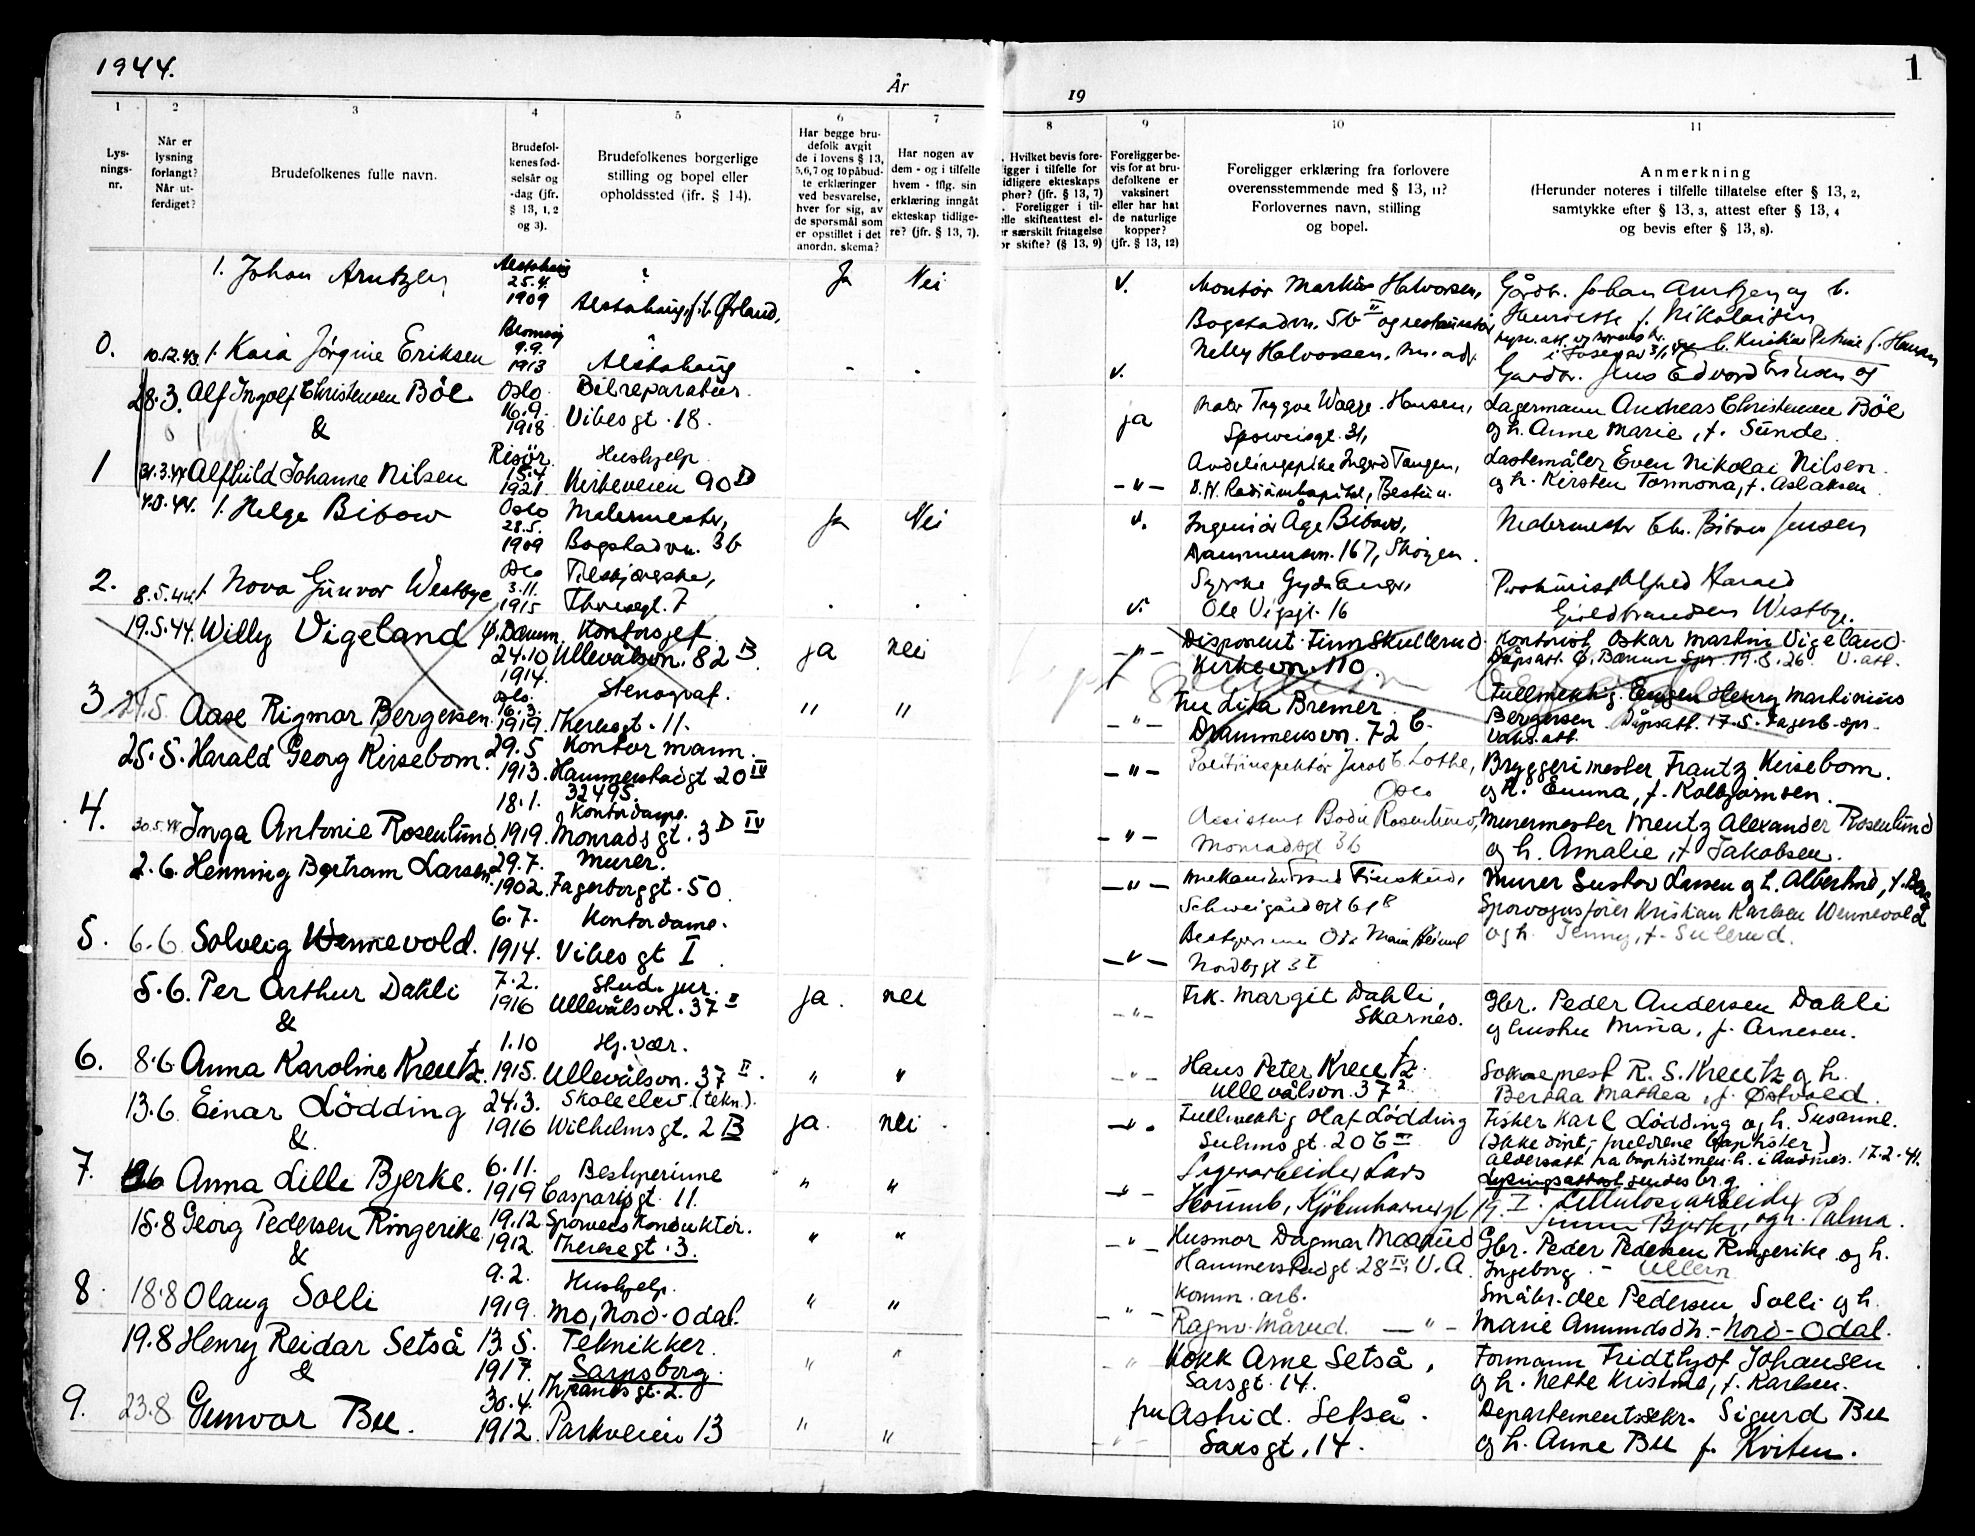 1944.
År
19
1
1
2
3
4
5
6
7
8
9
10
11
Lys-
nings-
nr.
Når er
lysning
forlangt?
Når ut-
ferdiget?
Brudefolkenes fulle navn.
Brudefol-
kenes fød-
selsår og
-dag (jfr.
§ 13, 1, 2
og 3).
Brudefolkenes borgerlige
stilling og bopel eller
opholdssted (ifr. § 14).
Har begge bru-
defolk avgit
de i lovens § 13,
5,6,7 og 10 påbud-
te erklæringer
ved besvarelse,
hver for sig, av
de spørsmål som
er opstillet i det
anordn. skema?
Har nogen av
dem - og i tilfelle
hvem - iflg. sin
erklæring inngått
ekteskap tidlige-
re? (jfr. § 13, 7).
. Hvilket bevis fore-
igger i tilfelle for
idligere ekteskaps
phør? (jfr. § 13, 7)
. Foreligger i til-
elle skifteattest el-
er særskilt fritagelse
or skifte? (§ 13, 9)
Foreligger be-
vis for at bru-
defolkene er
vaksinert
eller har hat
de naturlige
kopper?
(jfr. § 13, 12)
Foreligger erklæring fra forlovere
overensstemmende med § 13, 11?
Forlovernes navn, stilling
og bopel.
Anmerkning
(Herunder noteres i tilfelle tillatelse efter § 13, 2,
samtykke efter § 13, 3, attest efter § 13, 4
og bevis efter § 13, 8).
1. Johan Arntzen
Alstahaug
25.4.
1909
Alstahaug, f. i Ørland,
Ja Nei
v.
Montør Markus Halvorsen,
Bogstadvn. 56 II og
Nelly Halvorsen.
Gårdbr. Johan Arntzen og h.
f. Nikolaisen
0. 10.12.43. f. Kaia Jørgine Eriksen
9.9.
1913
Alstahaug
v.
Gårdbr. Jens Edvard Eriksen og
h. Kristine Petrine f. Hansen
28.3. Alf Ingolf Christensen Böe
&
Oslo
16.9.
1918
Bilreparatør.
Vibesgt. 18.
ja
Maler Trygve Waage Hansen,
Sporveisgt. 31,
Lagermann Andreas Christensen Böe
og h. Anne Marie, f. Sunde.
1 31.3.44 Alfhild Johanne Nilsen
Risør
15.4
1921
Hushjelp
Kirkeveien 90 D
- " -
Avdelingspike Ingrid Tangen,
D.N. Radiumhospital, Bestum.
Lastemåler Even Nikolai Nilsen.
og h. Kirsten Tormona, f. Aslaksen.
f. Helge Bibow
Oslo
28.5.
1909
Malermester,
Bogstadvn. 36
Ja Nei
v.
Ingeniør Åge Bibow,
Drammensvn. 167, Skøyen.
Malermester Chr. Bibow Jensen
2. 8.5.44. f. Nova Gunvor Westbye
Oslo
3.11.
1915
Theresegt. 7
v.
Ole Vigsgt. 16
Prokurist Alfred Harald
Guldbrandsen Westbye.
19.5.44. Willy Vigeland
Ø. Bærum
24.10
1914.
Kontorsjef.
Ullevålsvn. 82 B
ja nei
- " -
Disponent Finn Skullerud
Kirkevn. 110.
Kontorist Oskar Martin Vigeland.
Dåpsatt. Ø. Bærum Spr. 19.5.26 V. att.
3 24.5 Aase Rigmor Bergersen.
Oslo.
16.3.
1919.
Stenograf.
Theresgt. 11.
" "
- " -
Fru Lita Bremer
Drammensvn. 72 C.
Fullmektig Eugen Henry Martinius
Bergersen. Dåpsatt. 17.5. Fagerb. spr.
Vaks. att.
25.5. Harald Georg Kirsebom.
29.5
1913.
Kontormann.
Hammerstadgt 20 IV
32495.
- " -
Politiinspektør Jacob C. Lothe,
Oslo
Bryggerimester Frantz Kirsebom.
og h. Emma, f. Kolbjørnsen.
4. 30.5.44 Inga Antonie Rosenlund.
18.1.
1919.
Kontordame.
Monradsgt. 3 D IV
- " -
Assistent Bodil Rosenlund,
Monradsgt 36
Murermester Mentz Alexander Rosenlund
og h. Amalie, f. Jakobsen.
2.6. Henning Bertram Larsen.
29.7.
1902.
Murer.
Fagerborggt. 50.
- " -
Schweigårdsgt 61 B
Murer Gustav Larsen og h. Albertine, f. Berg
5. 6.6 Solveig Wennevold.
6.7.
1914.
Kontordame.
Vibesgt I.
- " -
Nordbygt 5 I
Sporvognsfører Kristian Karlsen Wennevold
og h. Jenny, f. Sulerud.
5.6. Per Arthur Dahli
&
7.2.
1916
Stud. jur.
Ullevålsvn. 37 II
ja. nei
- " -
Frk. Margit Dahli,
Skarnes.
Gbr. Peder Andersen Dahli
og hustru Mina, f. Arnesen.
6. 8.6 Anna Karoline Kreutz.
1.10
1915.
Hj. vær.
Ullevålsvn. 37 II.
" "
- " -
Hans Peter Kreutz.
Ullevålsvn. 37 2.
Sokneprest R. S. Kreutz og h.
Bertha Mathea, f. Østvold.
13.6. Einar Lödding
&
24.3.
1916
Skoleelev (tekn).
Wilhelmsgt. 2 B
ja. nei.
- " -
Fullmektig Olaf Lödding
Suhmsgt. 20 b III
Fisker Karl Lödding og h. Susanne.
(Ikke døpt, foreldrene baptister)
Aldersatt fra baptistmen.h. i Andenes. 17.2.41.
7. 19.6 Anna Lille Bjerke.
6.11.
1919
Bestyrerinne
Casparisgt. 11.
" "
- " -
Lagerarbeider Lars
Lysingsattest sendes br.g
Celluloscarbeider
Bjerke, og h. Palma.
15.8 Georg Pedersen Ringerike
&
19.12
1912.
Sporveiskonduktör.
Theresegt. 3.
" "
- " -
Husmor Dagmar Moarud
Hammerstadgt 28 IV. U.A.
Gbr. Peder Pedersen Ringerike og h.
Ingeborg. - Ullern
8. 18.8 Olaug Solli
9.2.
1919.
Hushjelp.
Mo, Nord-Odal.
" "
- " -
Komm. arb.
Ragnv. Måred. - " -
Småbr. Ole Pedersen Solli og h.
Marie Amundsdtr. - Nord-Odal.
19.8 Henry Reidar Setså
&
13.5.
1917.
Teknikker.
Sarpsborg.
Thranesgt. 2.
" "
"
Kokk Arne Setså,
Sarsgt. 14.
Formann Fridthjof Johansen
og h. Nette Kristine, f. Karlsen.
9. 23.8 Gunvor Bu.
30.4.
1912.
Parkveien 13
" "
- " -
fru Astrid Setså.
Sarsgt. 14.
Departementssekr. Sigurd Bu
og h. Anne Bu f. Kviten.